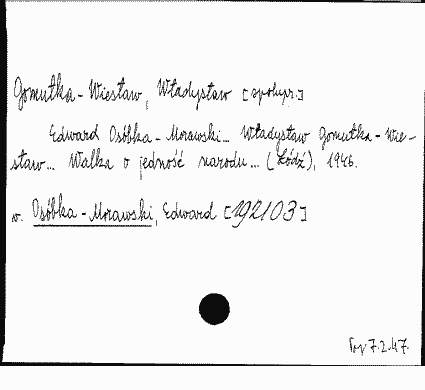 Gomułka-Wiesław, Władysław [współpr.]
Edward Osóbka-Morawski... Władysław Gomułka-Wie-
sław... Walka o jedność narodu... (Łódź), 1946.
w. Osóbka-Morawski, Edward [192103]
7.2.47.